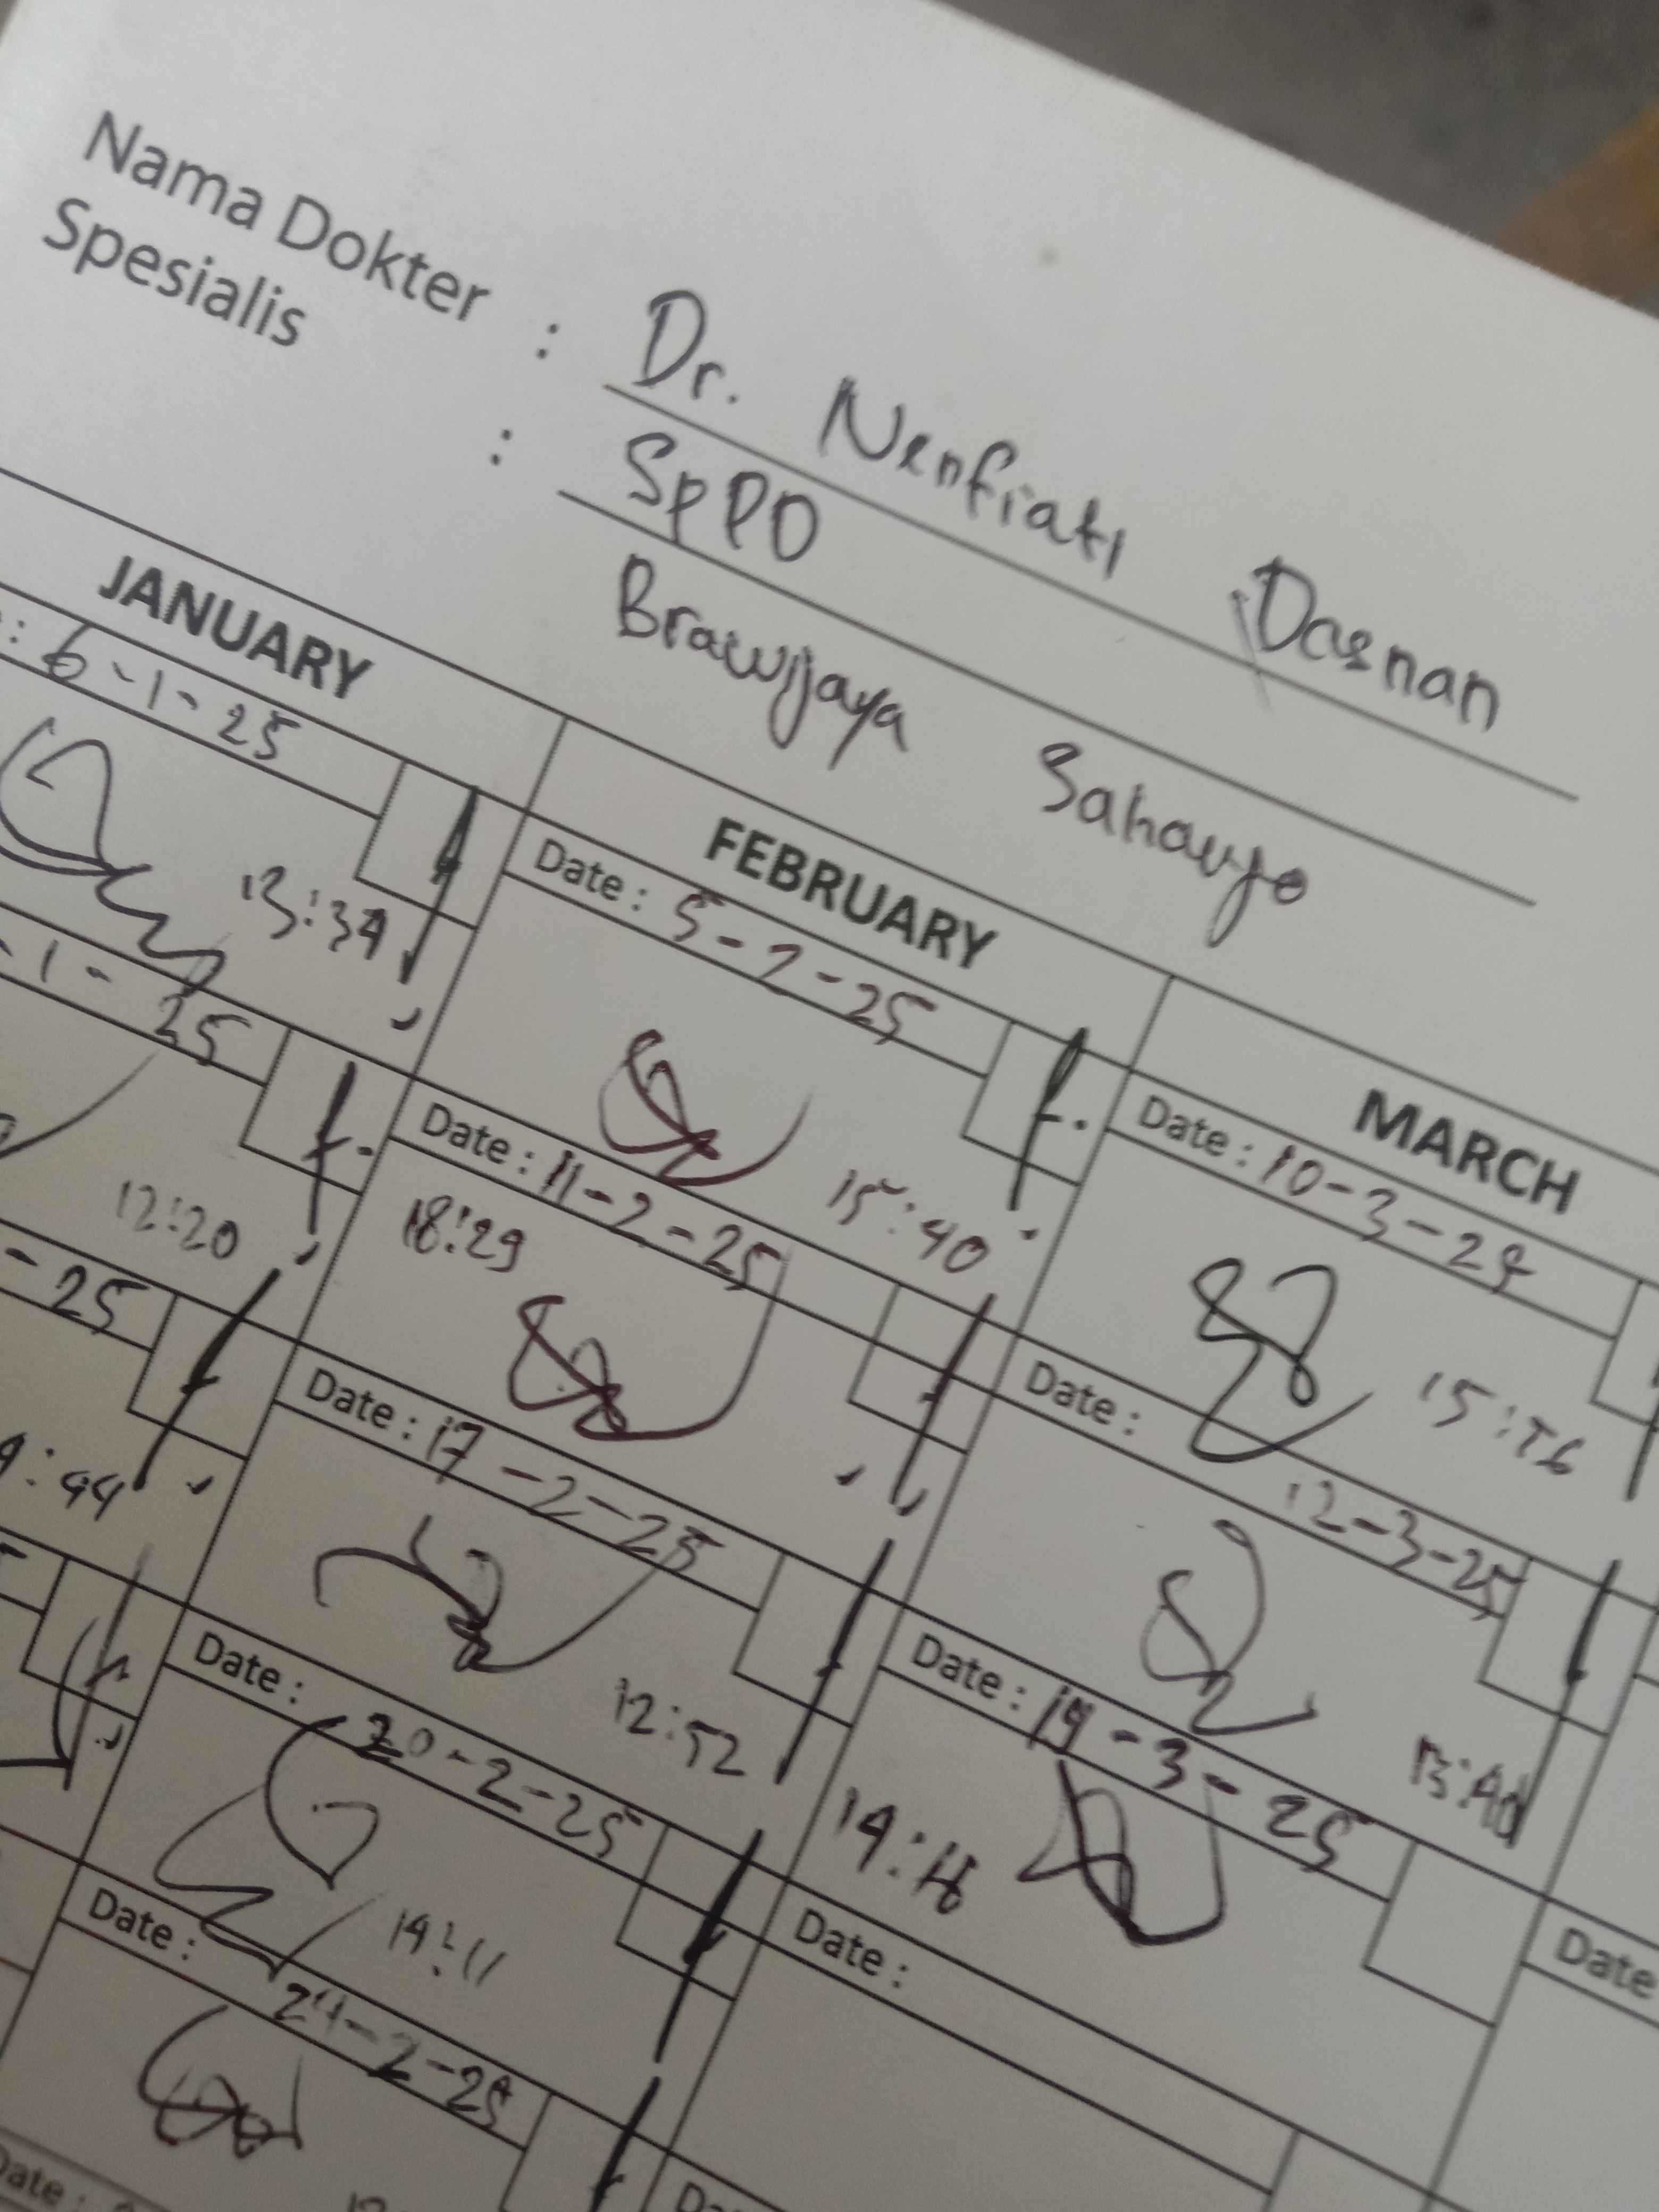 Nama Dokter : Dr. Nenfiati Dasnan
Spesialis : SpPD
Brawijaya Saharjo
JANUARY FEBRUARY MARCH
: 6-1-25
13:34
-1-25
12:20
-25
:44
Date : 5-2-25
15:40
Date : 11-2-25
18:29
Date : 17-2-25
12:52
Date : 20-2-25
14:11
Date : 24-2-25
Date : 10-3-25
Date : 12-3-25
13:40
Date : 19-3-25
Date :
Date
Date :